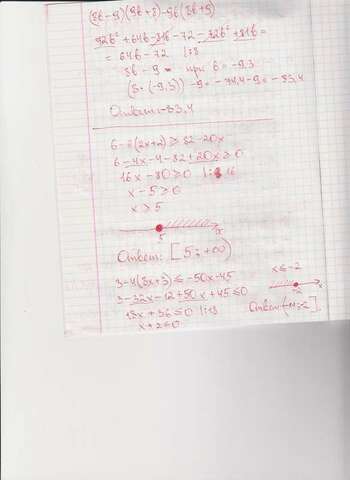 (8b-9)(9b+8)-9b(8b+9)
92b² + 64b - 81b - 72 - 72b² + 81b =
= 64b - 72 |:8
8b - 9 - при b = -9,3
(8·(-9,3)) - 9 = -74,4 - 9 = -83,4
Ответ: -83,4
6-2(2x+2) ≥ 82-20x
6-4x-4-82+20x ≥ 0
16x - 80 ≥ 0 |: 16
x - 5 ≥ 0
x ≥ 5
5 x
Ответ: [5; +∞)
3-4(8x+3) ≤ -50x-45
3-32x-12+50x+45 ≤ 0
18x+36 ≤ 0 |:18
x+2 ≤ 0
x ≤ -2
-2 x
Ответ (-∞; -2].